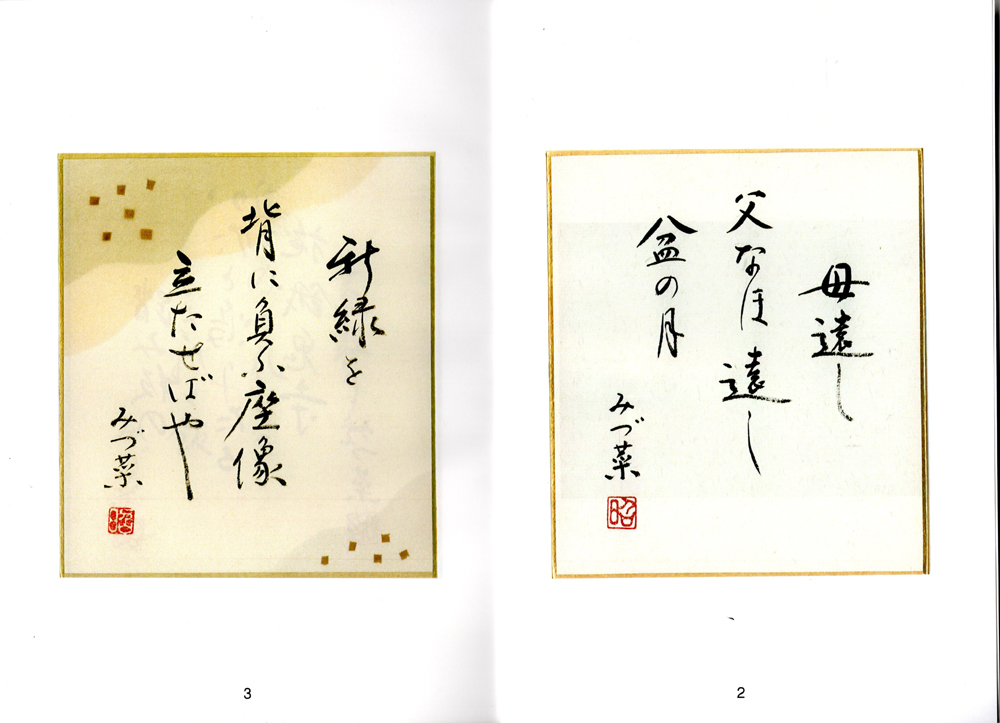 母遠し
父なほ遠し
盆の月
みづ菜
昭
2
新緑を
背に負ふ座像
立たせばや
みづ菜
3